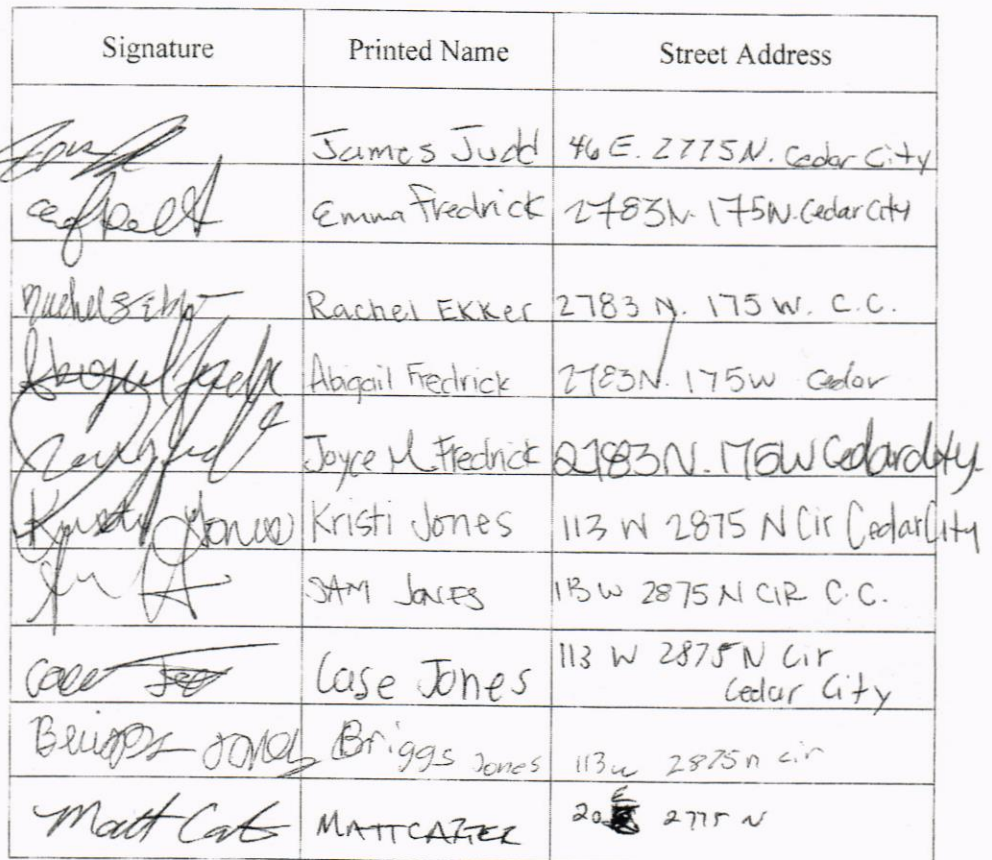 Signature Printed Name Street Address
James Judd 46 E. 2775 N. Cedar City
Emma Fredrick 2783 N. 175 W. Cedar City
Rachel Ekker 2783 N. 175 W. C.C.
Abigail Fredrick 2783 N. 175 W Cedar
Joyce M Fredrick 2783 N. 175 W Cedar City.
Kristi Jones Kristi Jones 113 W 2875 N Cir Cedar City
SAM JONES 113 W 2875 N CIR C.C.
Case Jones 113 W 2875 N Cir
Cedar City
Briggs Jones Briggs Jones 113 w 2875 n cir
Matt Cart MATT CARTER 20 E 2775 N